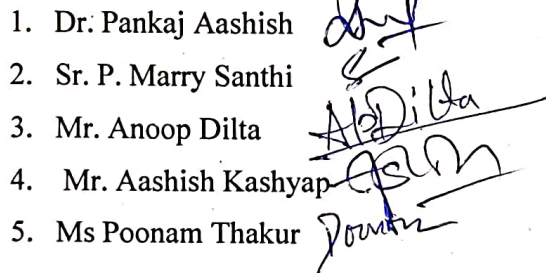 1. Dr. Pankaj Aashish
2. Sr. P. Marry Santhi
3. Mr. Anoop Dilta
4. Mr. Aashish Kashyap
5. Ms Poonam Thakur Poonam